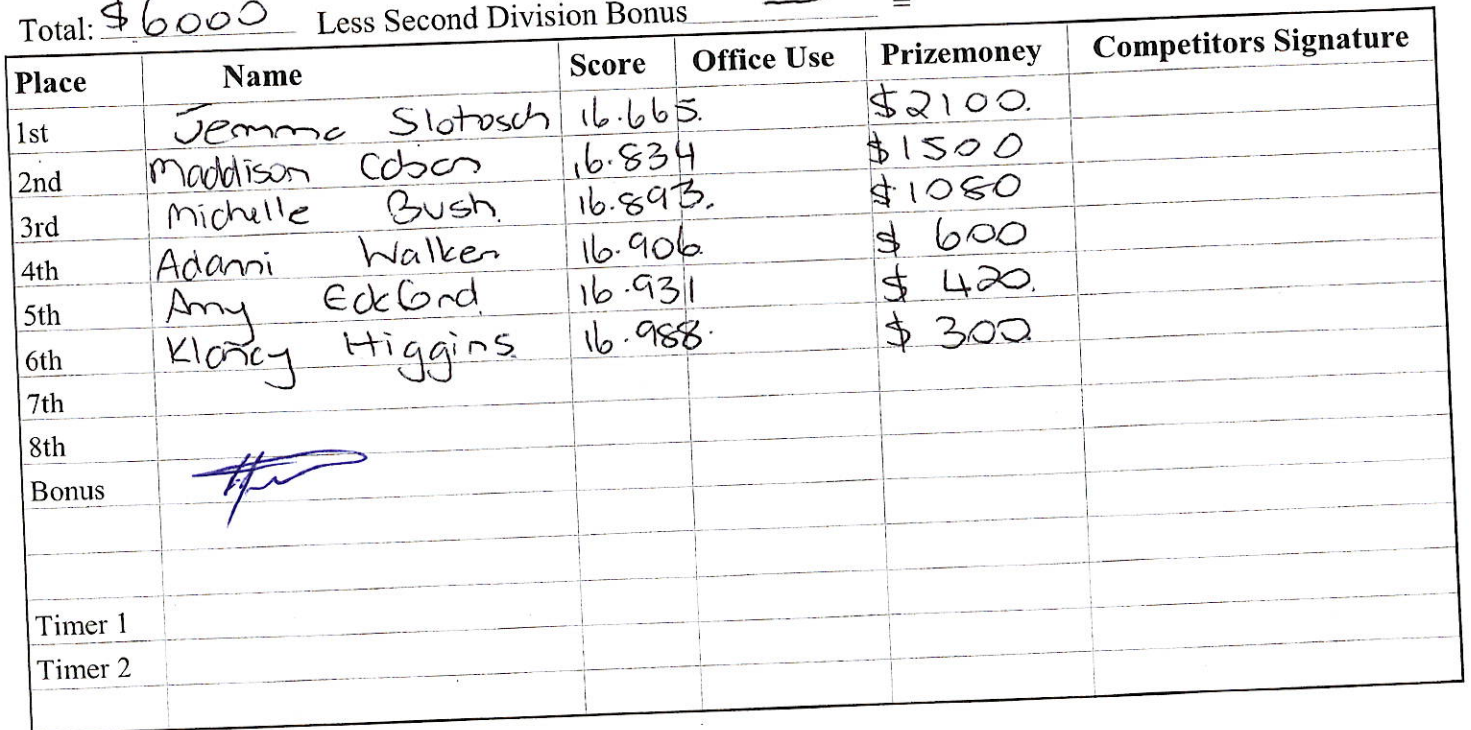 Total: $6000 Less Second Division Bonus — =
Place Name Score Office Use Prizemoney Competitors Signature
1st Jemma Slotosch 16.665. $2100.
2nd Maddison 16.834 $1500
3rd Michelle Bush. 16.893. $1080
4th Adanni Walker 16.906. $ 600
5th Amy Eckford. 16.931 $ 420.
6th Klancy Higgins. 16.988. $ 300.
7th
8th
Bonus
Timer 1
Timer 2